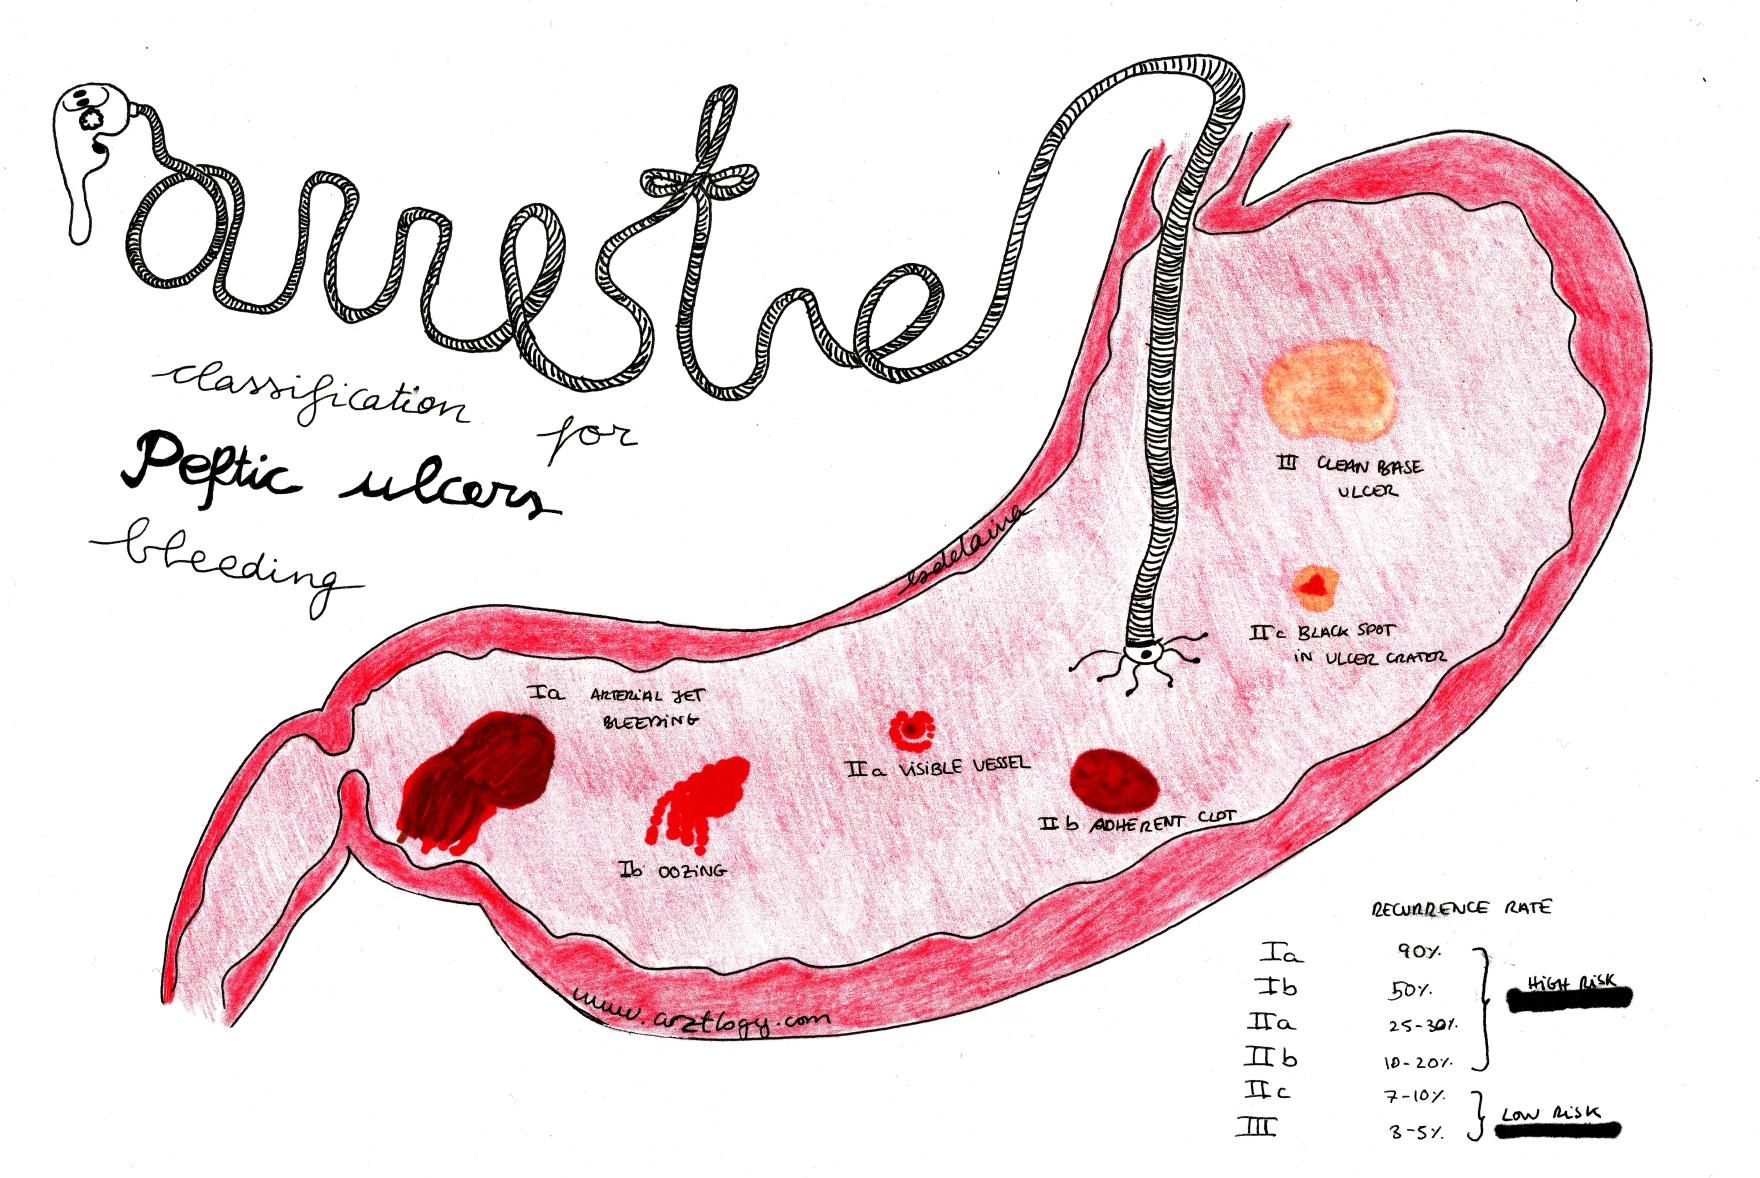 Forrest
classification for
Peptic ulcers
bleeding
III CLEAN BASE
ULCER
IIc BLACK SPOT
IN ULCER CRATER
Ia ARTERIAL JET
BLEEDING
Ib OOZING
IIa VISIBLE VESSEL
IIb ADHERENT CLOT
www.arztlogy.com
RECURRENCE RATE
Ia 90%
Ib 50%
IIa 25-30%
IIb 10-20%
HIGH RISK
IIc 7-10%
III 3-5%
LOW RISK